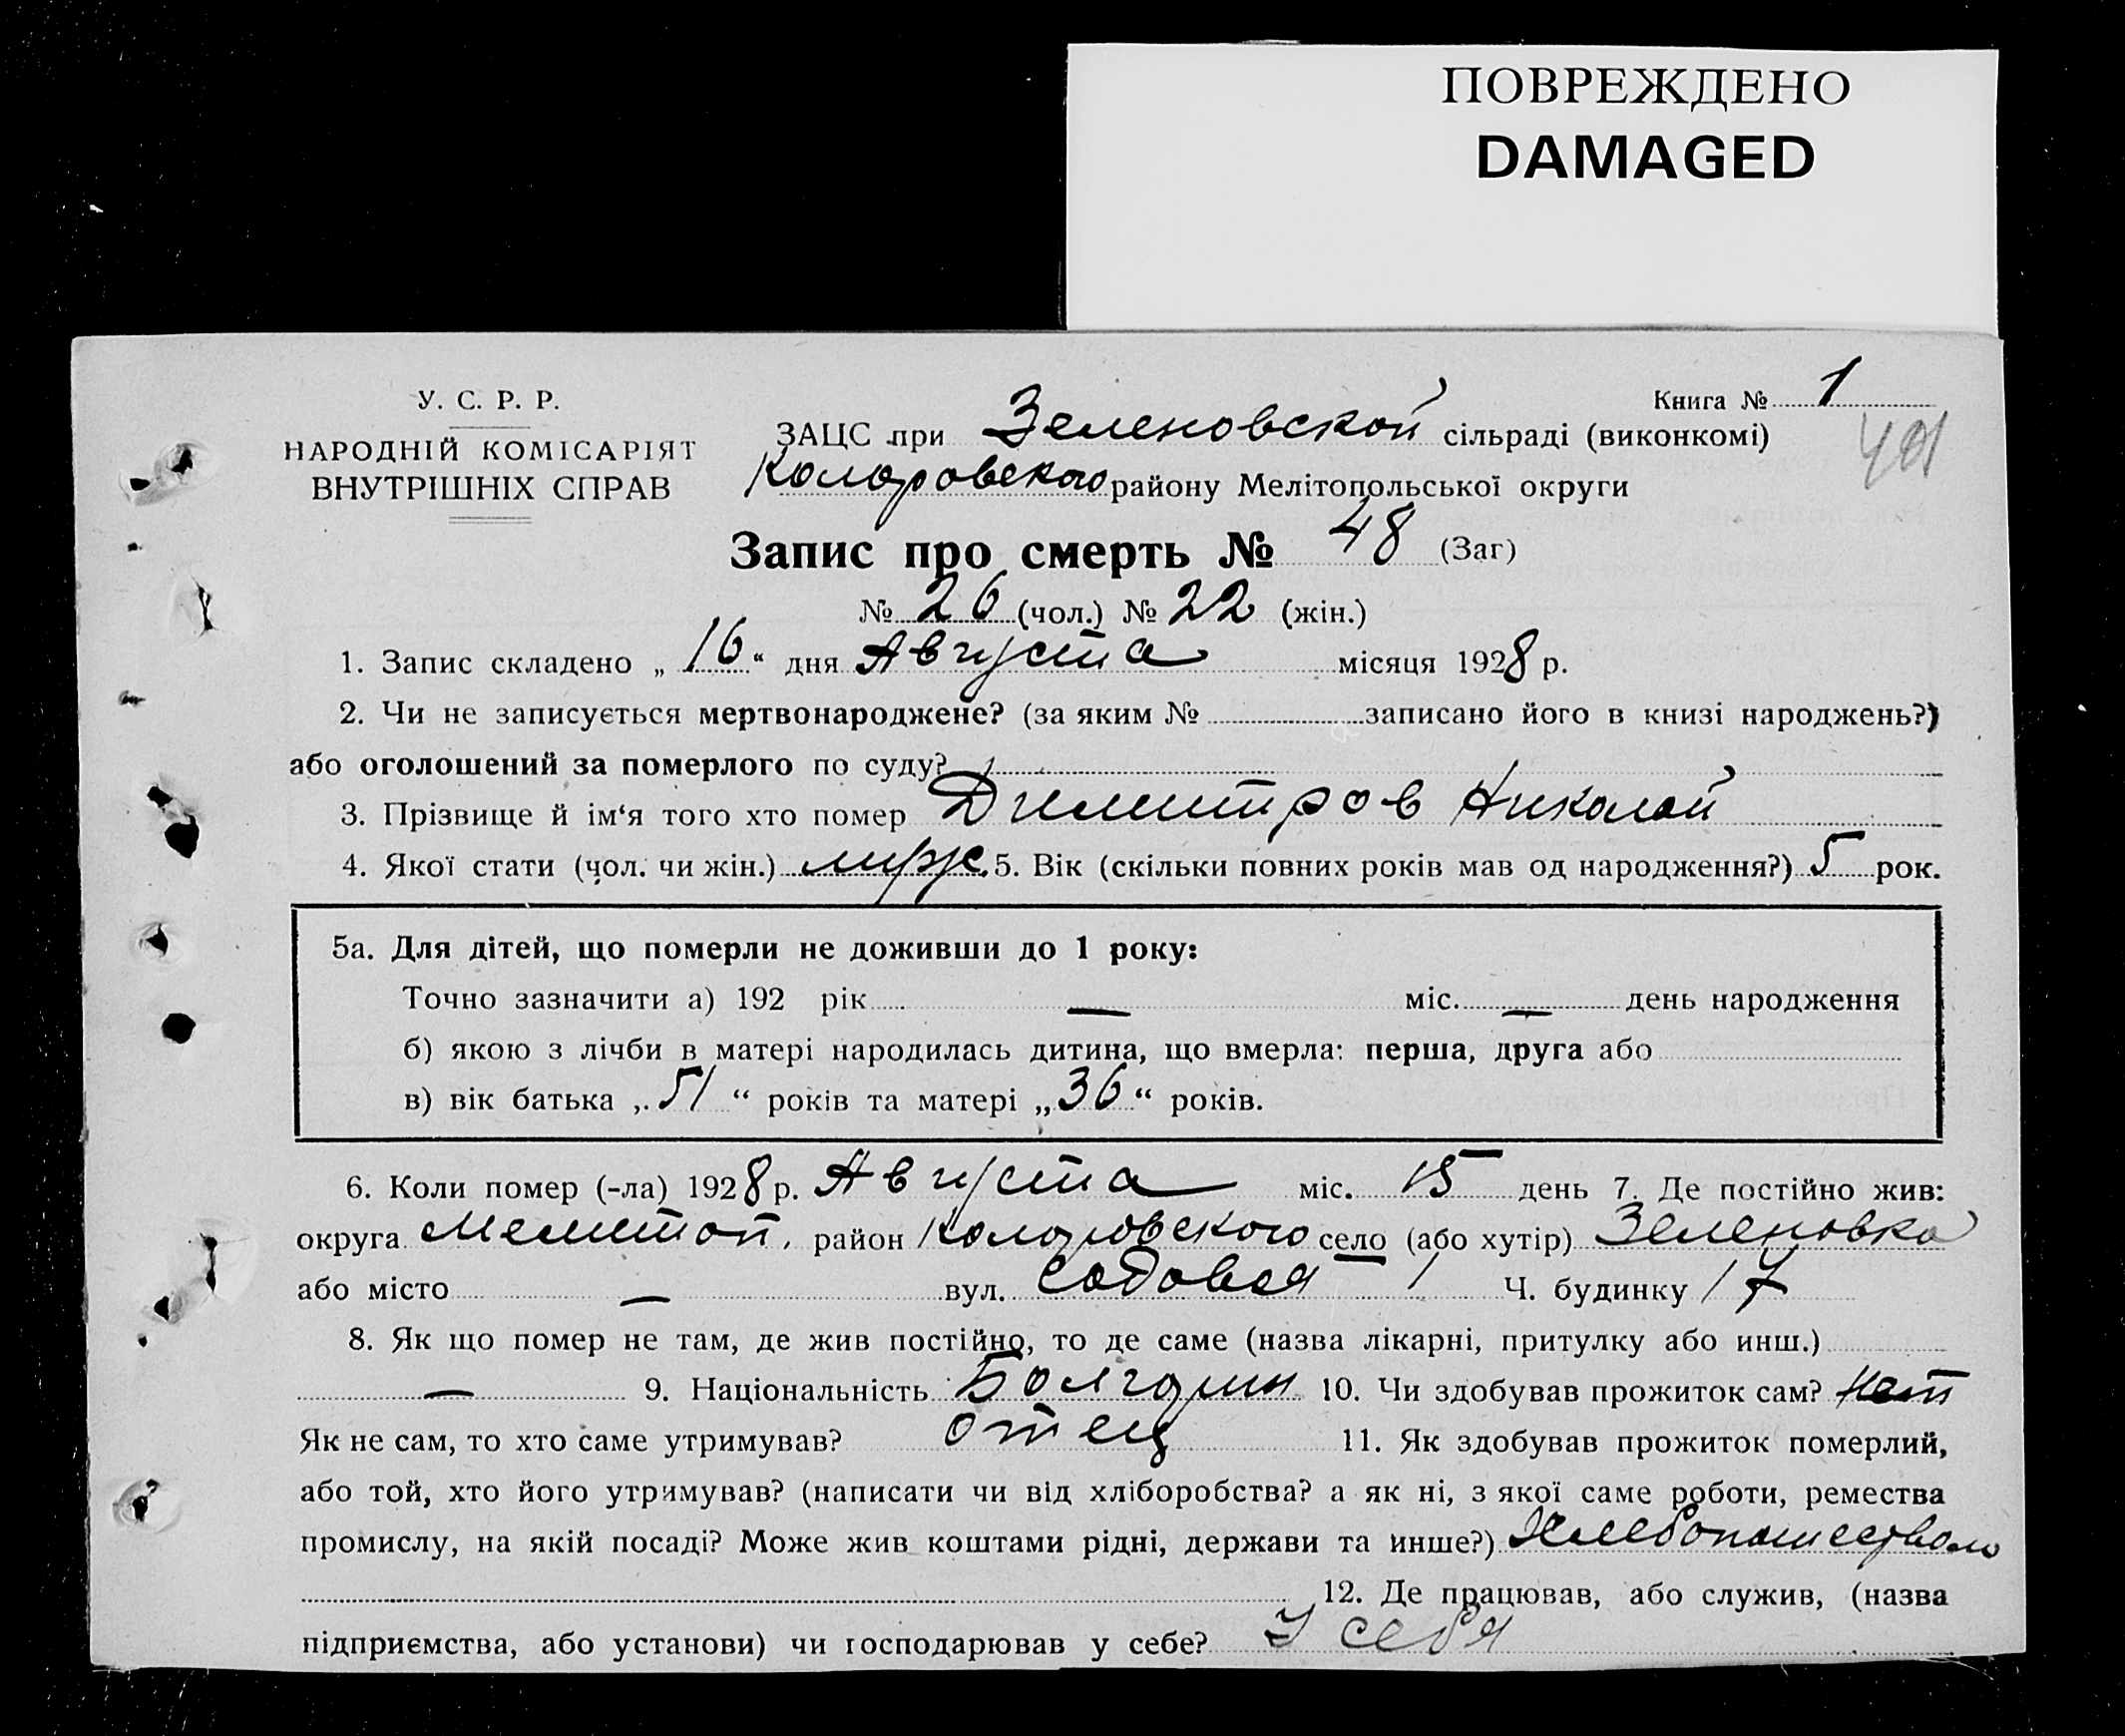 ПОВРЕЖДЕНО
DAMAGED
У. С. Р. Р.
НАРОДНІЙ КОМІСАРІЯТ
ВНУТРІШНІХ СПРАВ
Книга № 1
401
ЗАЦС при Зеленовской сільраді (виконкомі)
Коларовского району Мелітопольської округи
Запис про смерть № 48 (Заг)
№ 26 (чол.) № 22 (жін.)
1. Запис складено „ 16 “ дня Августа місяця 1928 р.
2. Чи не записується мертвонароджене? (за яким № записано його в книзі народжень?)
або оголошений за померлого по суду?
3. Прізвище й ім‘я того хто помер Димитров Николай
4. Якої стати (чол. чи жін.) мужс. 5. Вік (скільки повних років мав од народження?) 5 рок.
5а. Для дітей, що померли не доживши до 1 року:
Точно зазначити а) 192 рік — міс. — день народження
б) якою з лічби в матері народилась дитина, що вмерла: перша, друга або
в) вік батька „ 51 “ років та матері „ 36 “ років.
6. Коли помер (-ла) 1928 р. Августа міс. 15 день 7. Де постійно жив:
округа Мелитоп. район Коларовского село (або хутір) Зеленовка
або місто — вул. Садовая Ч. будинку 17
8. Як що помер не там, де жив постійно, то де саме (назва лікарні, притулку або инш.)
— 9. Національність Болгарин 10. Чи здобував прожиток сам? Нет
Як не сам, то хто саме утримував? отец 11. Як здобував прожиток померлий,
або той, хто його утримував? (написати чи від хліборобства? а як ні, з якої саме роботи, ремества
промислу, на якій посаді? Може жив коштами рідні, держави та инше?) Хлебопашеством
12. Де працював, або служив, (назва
підприємства, або установи) чи господарював у себе? У себя